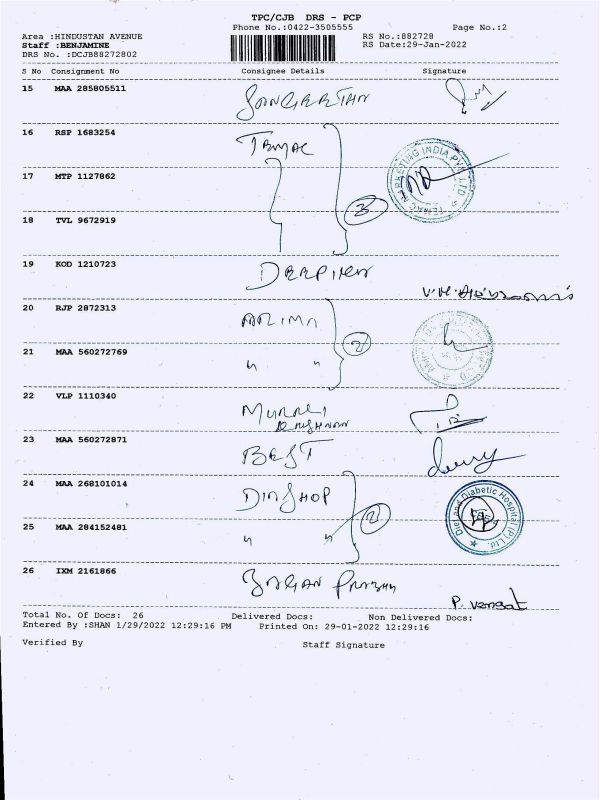 TPC/CJB DRS - PCP
Phone No.:0422-3505555
Page No.:2
Area :HINDUSTAN AVENUE
RS No.:882728
Staff :BENJAMINE
RS Date:29-Jan-2022
DRS No. :DCJB88272802
S No Consignment No Consignee Details Signature
15 MAA 285805511
16 RSP 1683254
17 MTP 1127862
3
MARKETING INDIA PVT. LTD
18 TVL 9672919
19 KOD 1210723
20 RJP 2872313
2
21 MAA 560272769 " "
22 VLP 1110340
23 MAA 560272871 BEST
24 MAA 268101014
2
Diabetic Hospital (P) Ltd.
25 MAA 284152481 " "
26 IXM 2161866
Total No. Of Docs: 26 Delivered Docs: Non Delivered Docs:
Entered By :SHAN 1/29/2022 12:29:16 PM Printed On: 29-01-2022 12:29:16
Verified By Staff Signature